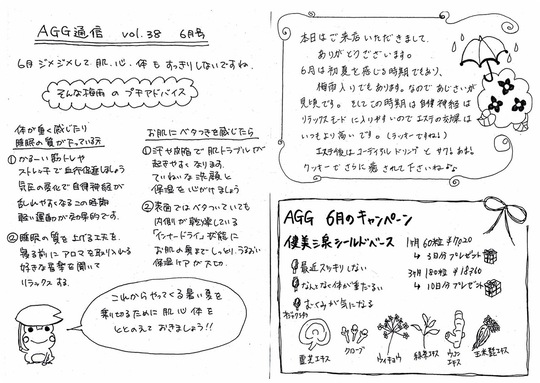 AGG通信 vol.38 6月号
6月 ジメジメして、肌、心、体も すっきりしないですね。
そんな梅雨の プチアドバイス
体が重く感じたり
睡眠の質が下っている方
①かる〜い筋トレや
ストレッチで血行促進しましょう
気圧の変化で自律神経が
乱れやすくなるこの時期
軽い運動が効果的です。
②睡眠の質を上げる工夫を。
寝る前にアロマを取り入れたり
好きな音楽を聞いて
リラックスする。
お肌にベタつきを感じたら
①汗や皮脂で肌トラブルが
起きやすくなります。
ていねいな洗顔と
保湿を心がけましょう
②表面ではベタついていても
内側が乾燥している
「インナードライ」状態に
お肌の奥までしっとり、うるおい
保湿ケアが大切。
これからやってくる暑い夏を
乗り切るために 肌 心 体を
ととのえて おきましょう!!
本日はご来店いただきまして、
ありがとうございます。
6月は初夏を感じる時期でもあり、
梅雨入りでもあります。なので あじさいが
見頃です。そしてこの時期は自律神経は
リラックスモードに入りやすいので エステの効果は
いつもより高いです。(ラッキーですね♪)
エステ後はコーディアルドリンクと サクサクあまい
クッキーでさらに癒されて下さいね
AGG 6月のキャンペーン
健美三泉シールドベース
1ヶ月 60粒 ¥7020
↳ 3日分プレゼント
3ヶ月 180粒 ¥18360
↳ 10日分プレゼント
最近スッキリしない
なんとなく体が重だるい
むくみが気になる
霊芝エキス
クローブ
ウイキョウ
緑茶エキス
ウコンエキス
玉米鬚エキス